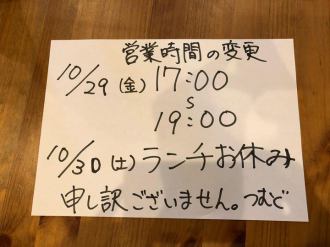 営業時間の変更
10/29(金)17:00
s
19:00
10/30(土)ランチお休み
申し訳ございません。つむぐ